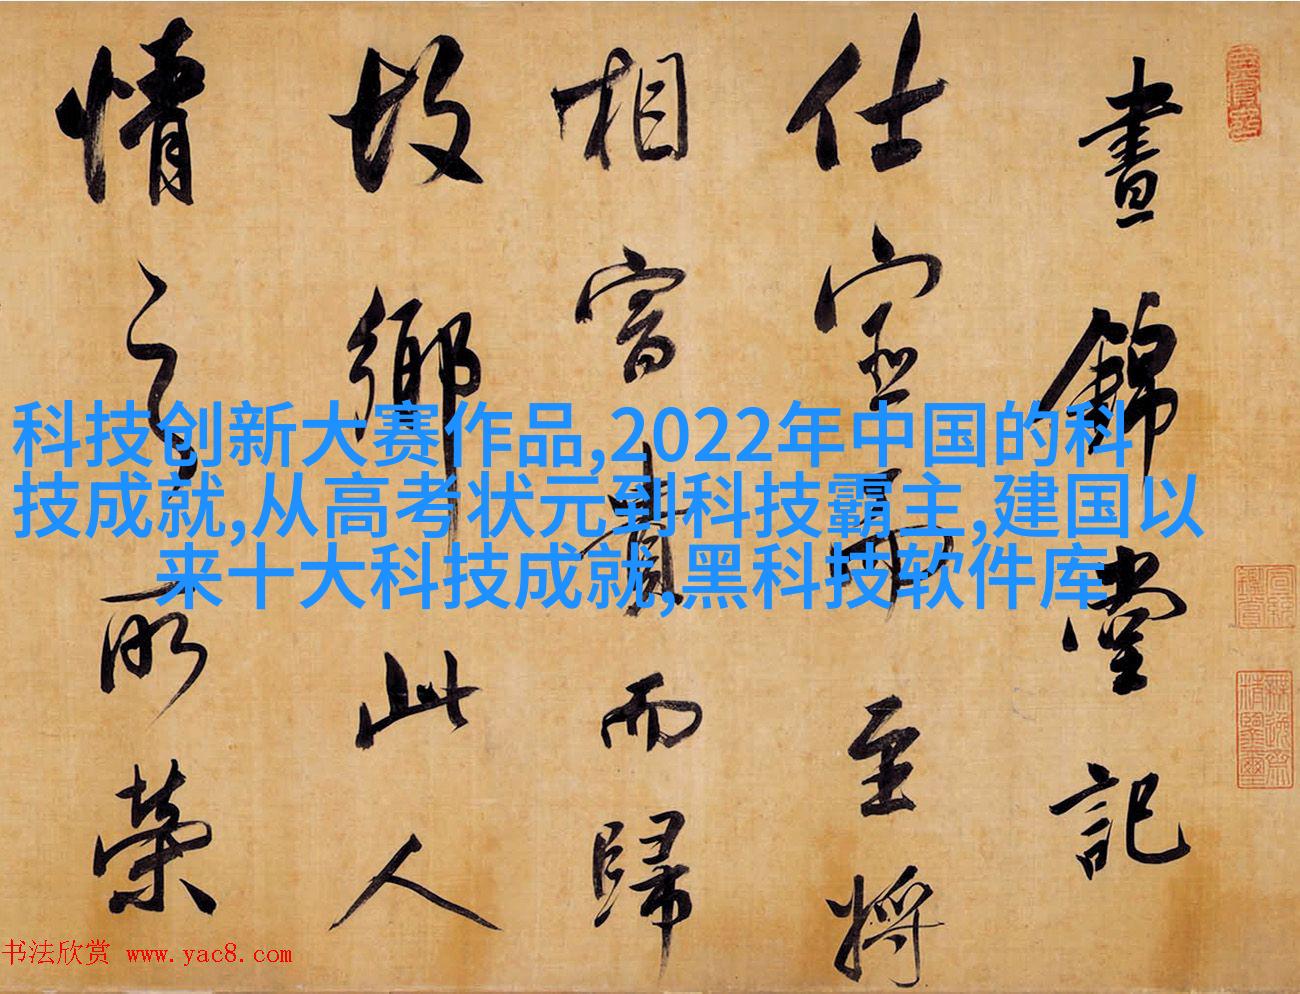 晝錦堂記
仕宦而至將
相富貴而歸
故鄉此人
情之所榮
科技创新大赛作品,2022年中国的科
技成就,从高考状元到科技霸主,建国以
来十大科技成就,黑科技软件库
书法欣赏 www.yac8.com